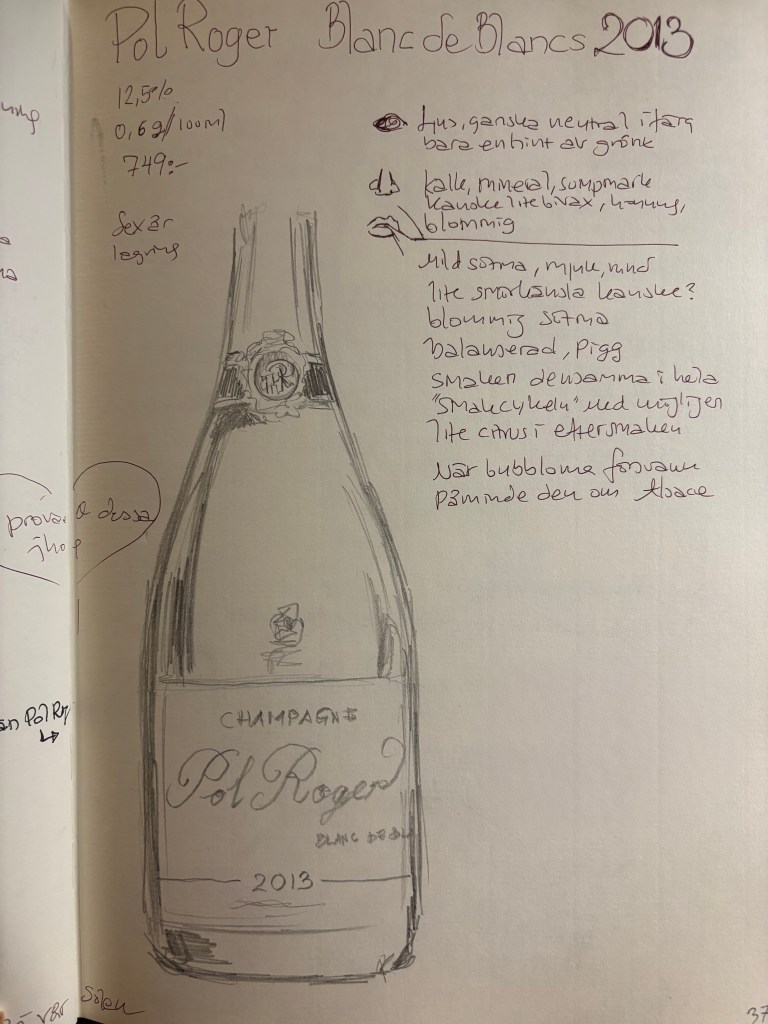 Pol Roger Blanc de Blancs 2013
12,5%
0,6g/100ml
749:-
Sex år
lagring
Ljus, ganska neutral i färg
bara en hint av grönt
kalk, mineral, sumpmark
kanske lite bivax, honung,
blommig
Mild sötma, mjuk, rund
lite smörkänsla kanske?
blommig sötma
balanserad, pigg
smaken densamma i hela
"smakcykeln" med möjligen
lite citrus i eftersmaken
När bubblorna försvann
påminde den om Alsace
CHAMPAGNE
Pol Roger
BLANC DE BLA
2013
PR
prova dessa
ihop
Pol R
var
Solen
37